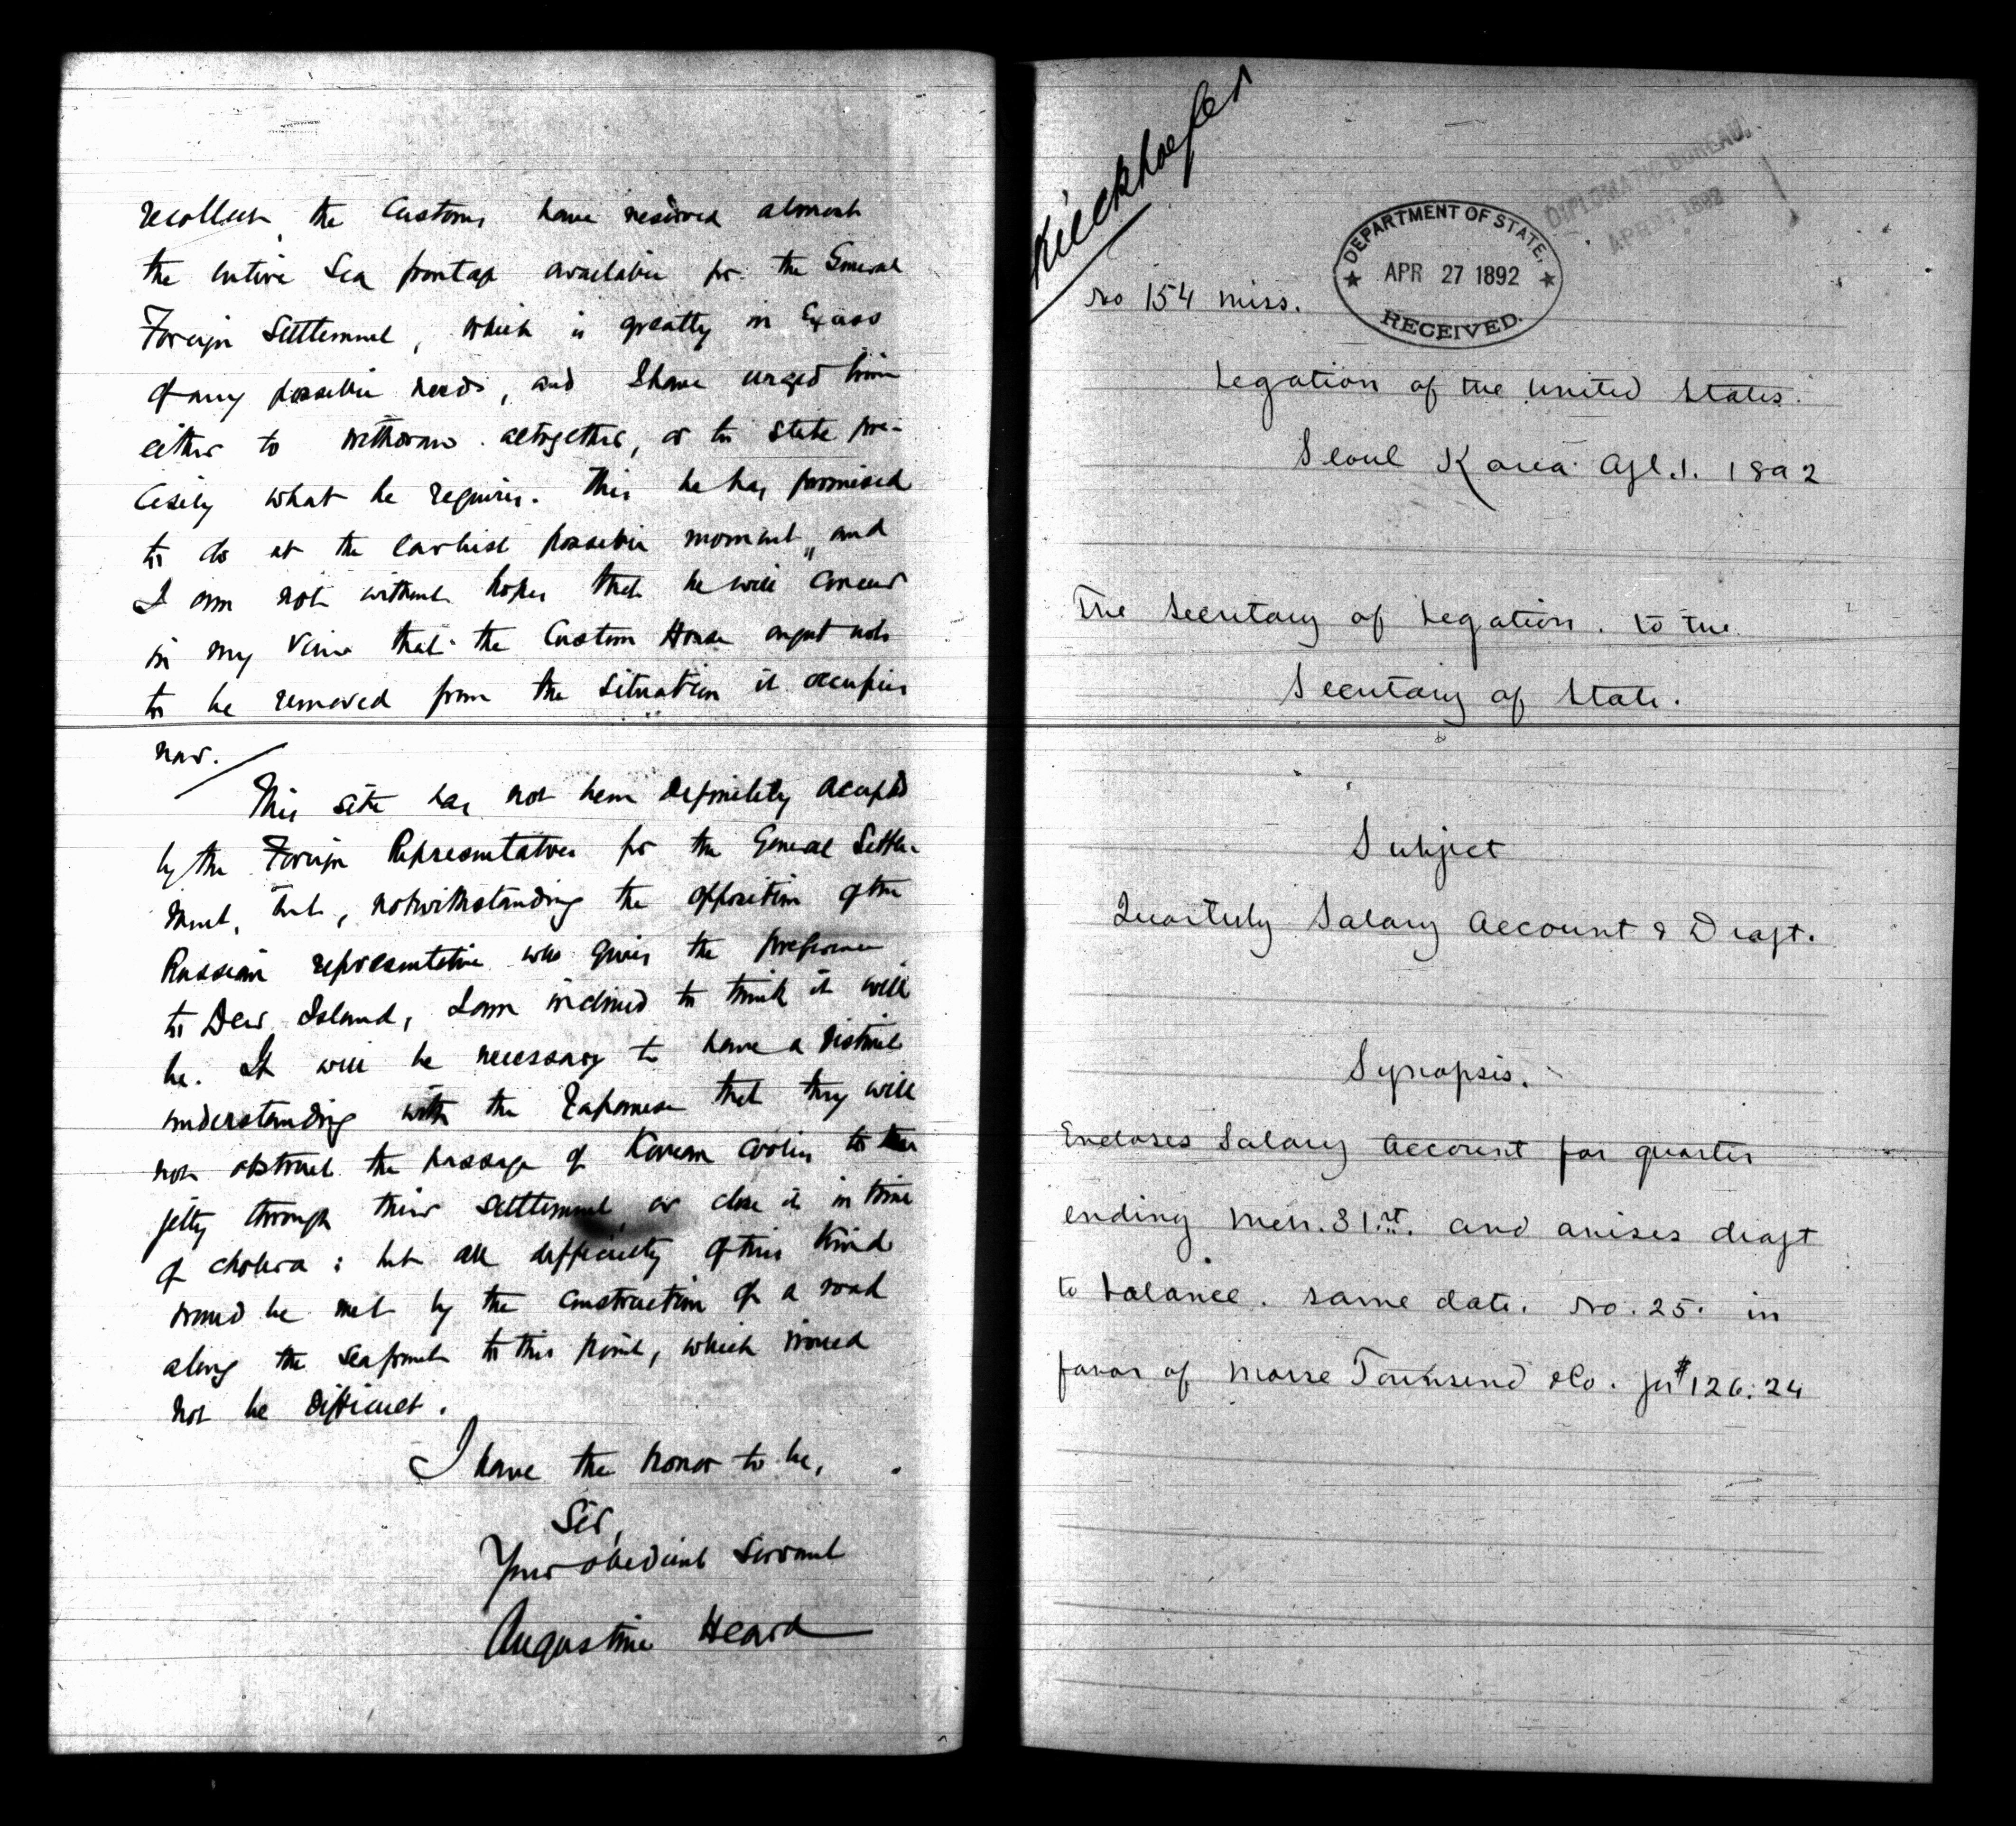 recollect, the Customs have reserved almost
the entire Sea frontage available for the General
Foreign Settlement, which is greatly in Excess
of any possible needs, and I have urged him
either to withdraw altogether, or to state pre-
cisely what he requires. This he has promised
to do at the earliest possible moment, and
I am not without hopes that he will concur
in my view that the Custom House ought not
to be removed from the situation it occupies
now.
This site has not been definitely accepted
by the Foreign Representatives for the General Settle-
ment, but, notwithstanding the opposition of the
Russian representative who gives the preference
to Deer Island, I am inclined to think it will
be. It will be necessary to have a distinct
understanding with the Japanese that they will
not obstruct the passage of Korean coolies to the
jetty through their settlement, or close it in time
of cholera: but all difficulty of this kind
would be met by the construction of a road
along the seafront to this point, which would
not be difficult.
I have the honor to be,
Sir,
Your obedient Servant
Augustine Heard
Kieckhoefer
DIPLOMATIC BUREAU.
APR 27 1892
DEPARTMENT OF STATE,
APR 27 1892
RECEIVED.
No 154 miss.
Legation of the United States.
Seoul Korea Apl. 1. 1892
The Secretary of Legation. to the
Secretary of State.
Subject
Quarterly Salary Account & Draft.
Synopsis.
Encloses Salary Account for quarter
ending Mch. 31st. and advises draft
to balance. same date. No. 25. in
favor of Morse Townsend & Co. for $126.24